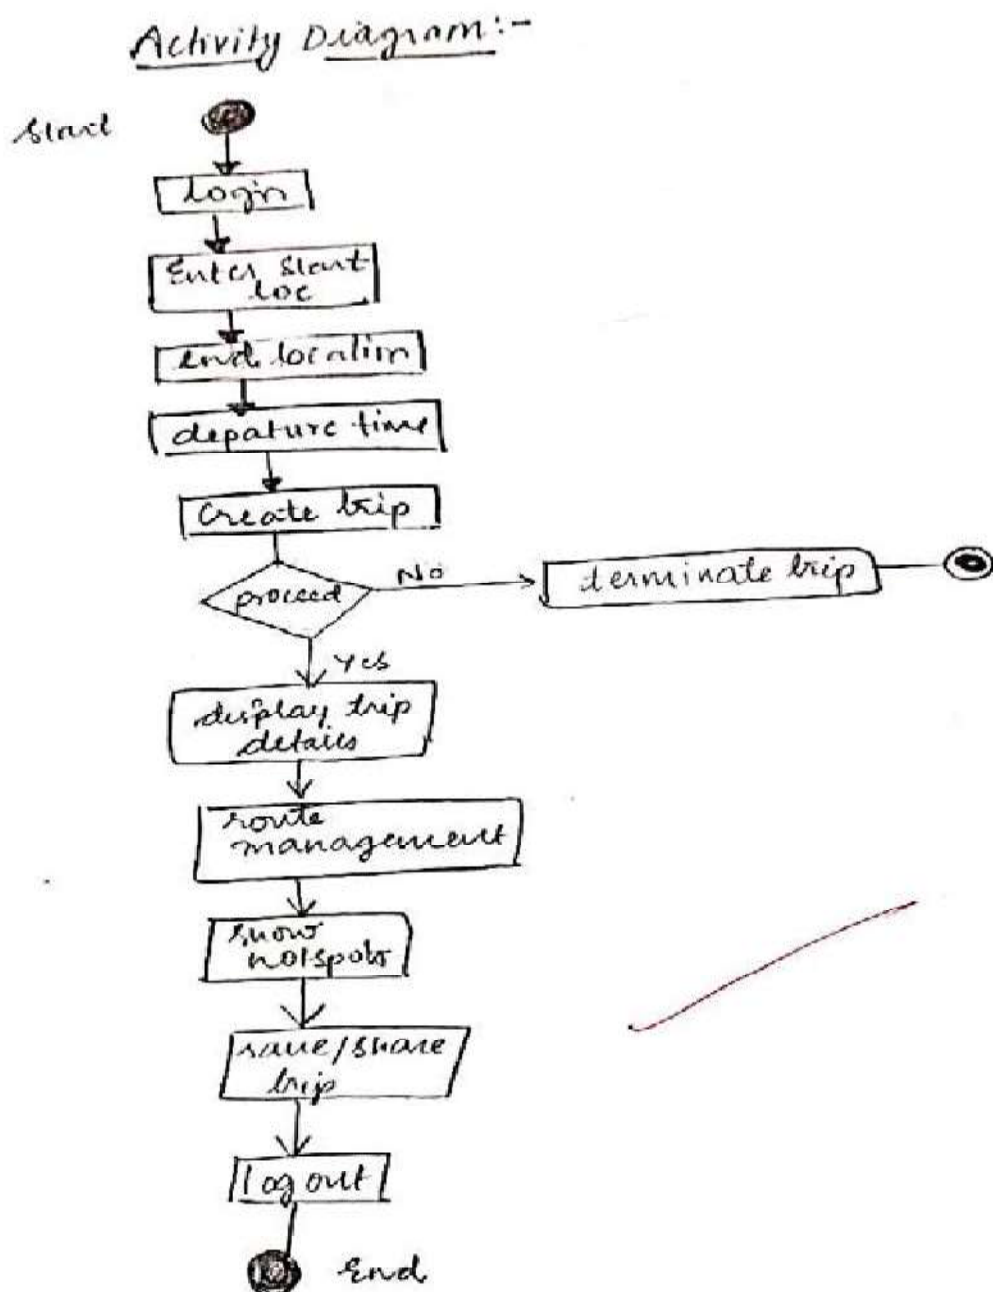 Activity Diagram:-
Start
Login
Enter Start
loc
end location
depature time
Create trip
proceed
No
terminate trip
Yes
display trip
details
route
management
show
hotspots
save/share
trip
log out
End